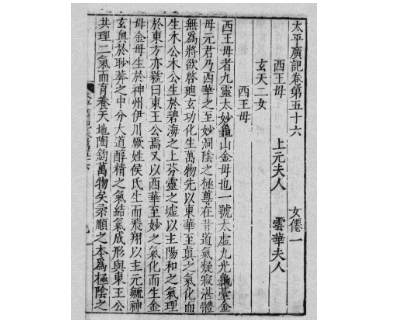 太平廣記卷第五十六　女僊一
西王母　上元夫人　雲華夫人
玄天二女
西王母
西王母者九靈太妙龜山金母也一號太虛九光龜臺金
母元君乃西華之至妙洞陰之極尊在昔道氣凝寂湛體
無爲將欲啓迪玄功化生萬物先以東華至真之氣化而
生木公木公生於碧海之上芬靈之墟以主陽和之氣理
於東方亦號曰東王公焉又以西華至妙之氣化而生金
母金母生於神州伊川厥姓侯氏生而飛翔以主元毓神
玄奧於眇莽之中分大道醇精之氣結氣成形與東王公
共理二氣而育養天地陶鈞萬物矣柔順之本爲極陰之